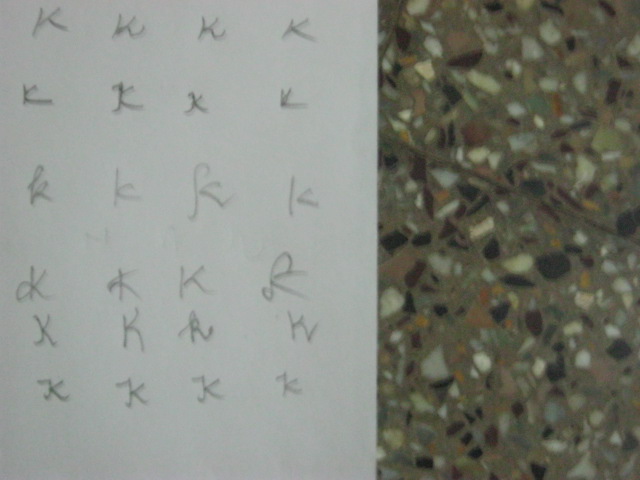 K K K K
K K K K
k k k k
K K K K
K K k K
K K K K